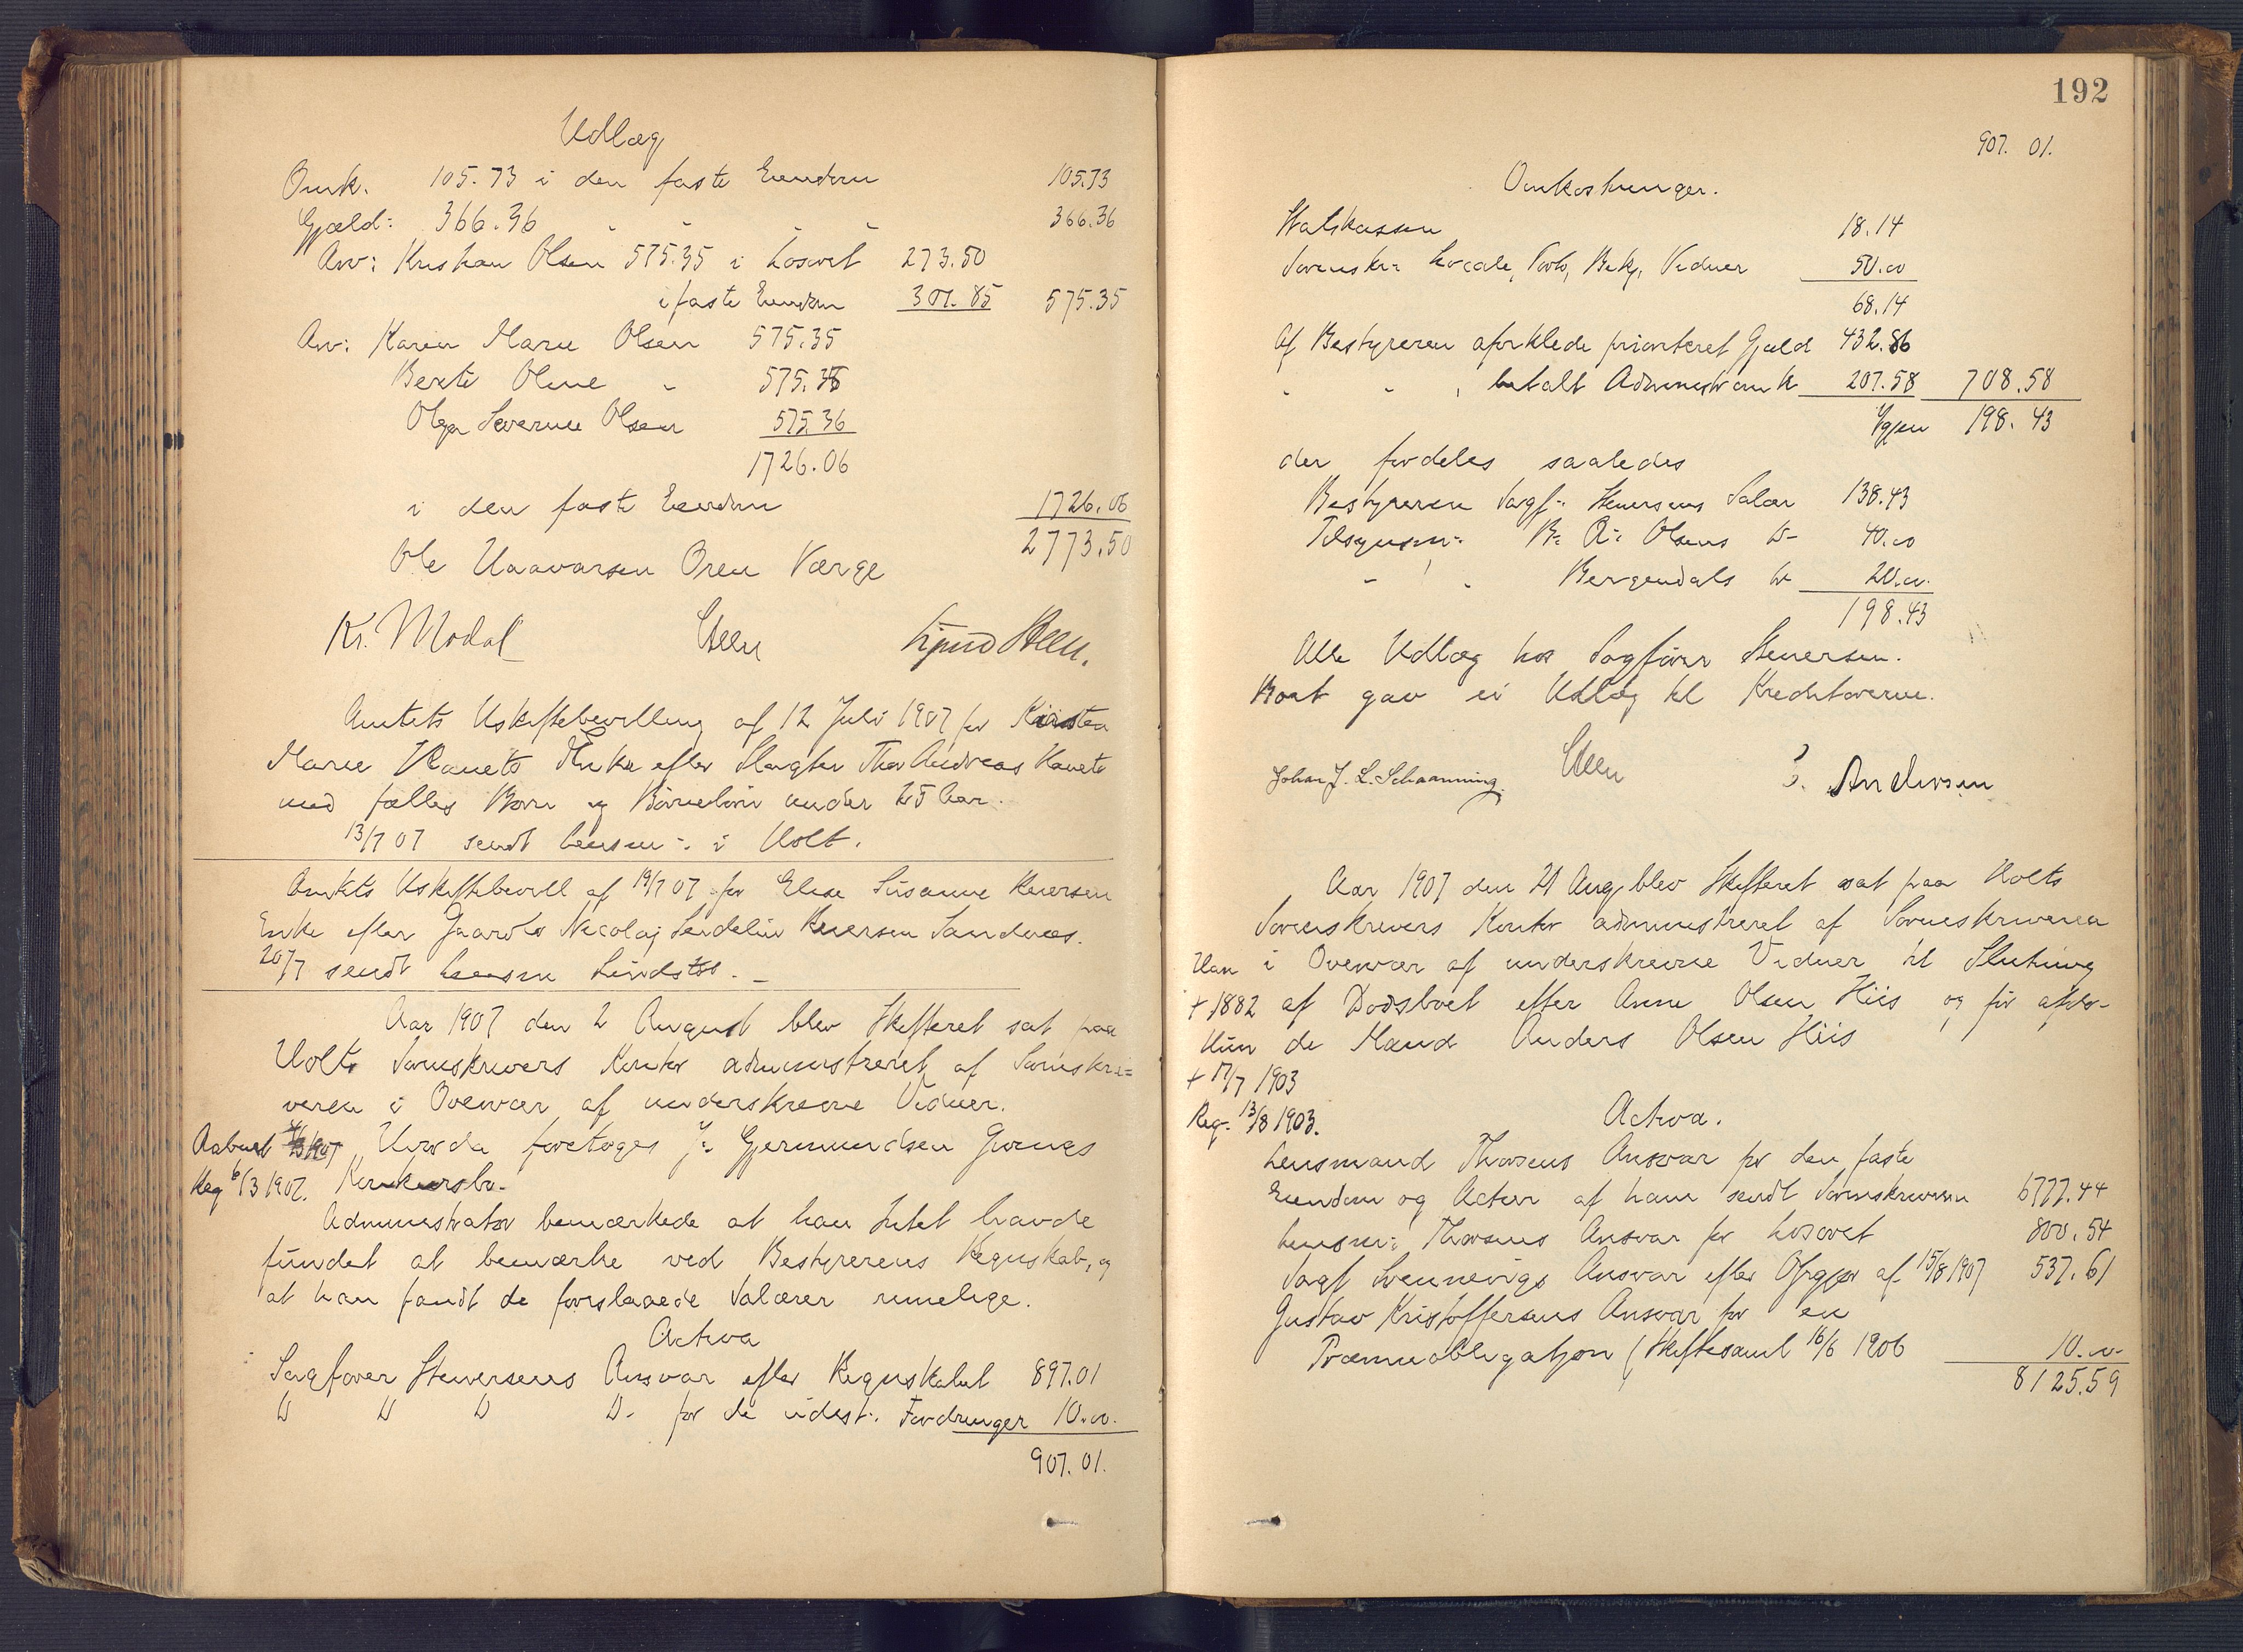 Udlæg
Omk. 105.73 i den faste Eiendom 105.73
Gjæld: 366.36 - - - - 366.36
Arv: Kristian Olsen 575.35 i Løsøret 273.50
i faste Eiendom 301.85 575.35
Arv: Karen Marie Olsen 575.35
Berte Oline - 575.35
Olga Severine Olsen 575.36
1726.06
i den faste Eiendom 1726.06
2773.50
Ole Unavarsen Oren Værge
Kr. Modal Steen Sigurd Steen.
Amtets Uskiftebevilling af 12 Juli 1907 for Kirsten
Marie Hanets Enke efter Slagter Thor Andreas Hanets
med fælles Børn og Børnebørn under 25 Aar.
13/7 07 sendt Lensm: i Holt.
Amtets Uskiftebevill af 19/7 07 for Elise Susanne Iversen
Enke efter Gaardbr Nicolaj Sendelin Iversen Sandnæs.
20/7 sendt Lensm Lindstøl.
Aar 1907 den 2 August blev Skifteret sat paa
Holts Sorenskrivers Kontor administreret af Sorenskri=
veren i Overvær af underskrevne Vidner.
Aabnet 1907 Hvorda foretoges J: Gjermundsen Gjernes
Reg 6/3 1907. Konkursbo.
Administrator bemærkede at han Intet havde
fundet at bemærke ved Bestyrerens Regnskab, og
at han fandt de foreslaaede Salærer rimelige.
Activa
Sagfører Stenersens Ansvar efter Regnskabet 897.01
D D D D- for de udest: Fordringer 10.00.
907.01.
192
907. 01.
Omkostninger.
Statskassen 18.14
Sorenskr: Locale, Prot, Bekj, Vidner 50.00
68.14
Af Bestyreren afviklede prioriteret Gjæld 432.86
- - , betalt Administr omk 207.58 708.58
Igjen 198.43
der fordeles saaledes
Bestyreren Sagf: Stenersens Salær 138.43
Tilsynsm: B: A: Olsens D- 40.00
- ! - Bergendals D 20.00.
198.43
Alle Udlæg hos Sagfører Stenersen.
Boet gav ei Udlæg til Kreditorerne.
Johan J. L. Schaanning. Steen S. Andersen
Aar 1907 den 21 Aug. blev Skifteret sat paa Holts
Sorenskrivers Kontor administreret af Sorenskriveren
Han i Overvær af underskrevne Vidner til Slutning
+ 1882 af Dødsboet efter Anne Olsen Hiis og før afdø-
Hun de Mand Anders Olsen Hiis
+ 17/7 1903
Reg. 13/8 1903.
Activa.
Lensmand Thorsens Ansvar for den faste
Eiendom og Actier af ham sendt Sorenskriveren 6777.44
Lensm: Thorsens Ansvar for Løsøret 800.54
Sagf Svennevigs Ansvar efter Opgjør af 15/8 1907 537.61
Gustav Kristoffersens Ansvar for en
Præmieobligation (Skiftesaml 16/6 1906 10.00
8125.59